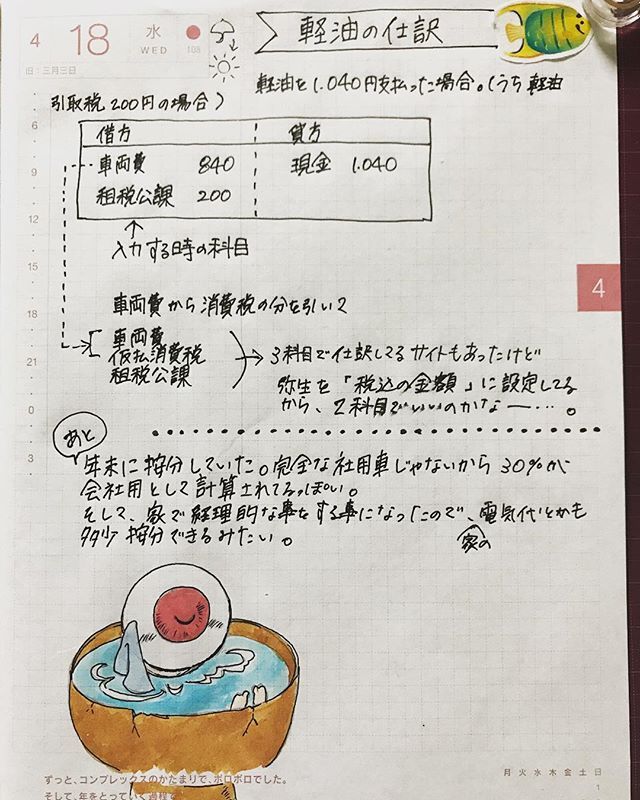 4 18 水 WED 108
旧:三月三日
軽油の仕訳
軽油を1.040円支払った場合。(うち軽油
引取税200円の場合)
借方 貸方
車両費 840 現金 1.040
租税公課 200
入力する時の科目
車両費から消費税の分を引いて
車両費
仮払消費税
租税公課
3科目で仕訳してるサイトもあったけど
弥生を「税込の金額」に設定してる
から、2科目でいいのかなー…。
あと
年末に按分していた。完全な社用車じゃないから30%が
会社用として計算されてるっぽい。
そして、家で経理的な事をする事になったので、電気代とかも
家の
多少按分できるみたい。
6
9
12
15
18
21
0
3
4
ずっと、コンプレックスのかたまりで、ボロボロでした。
そして、年をとっていく過程で
月火水木金土日
1